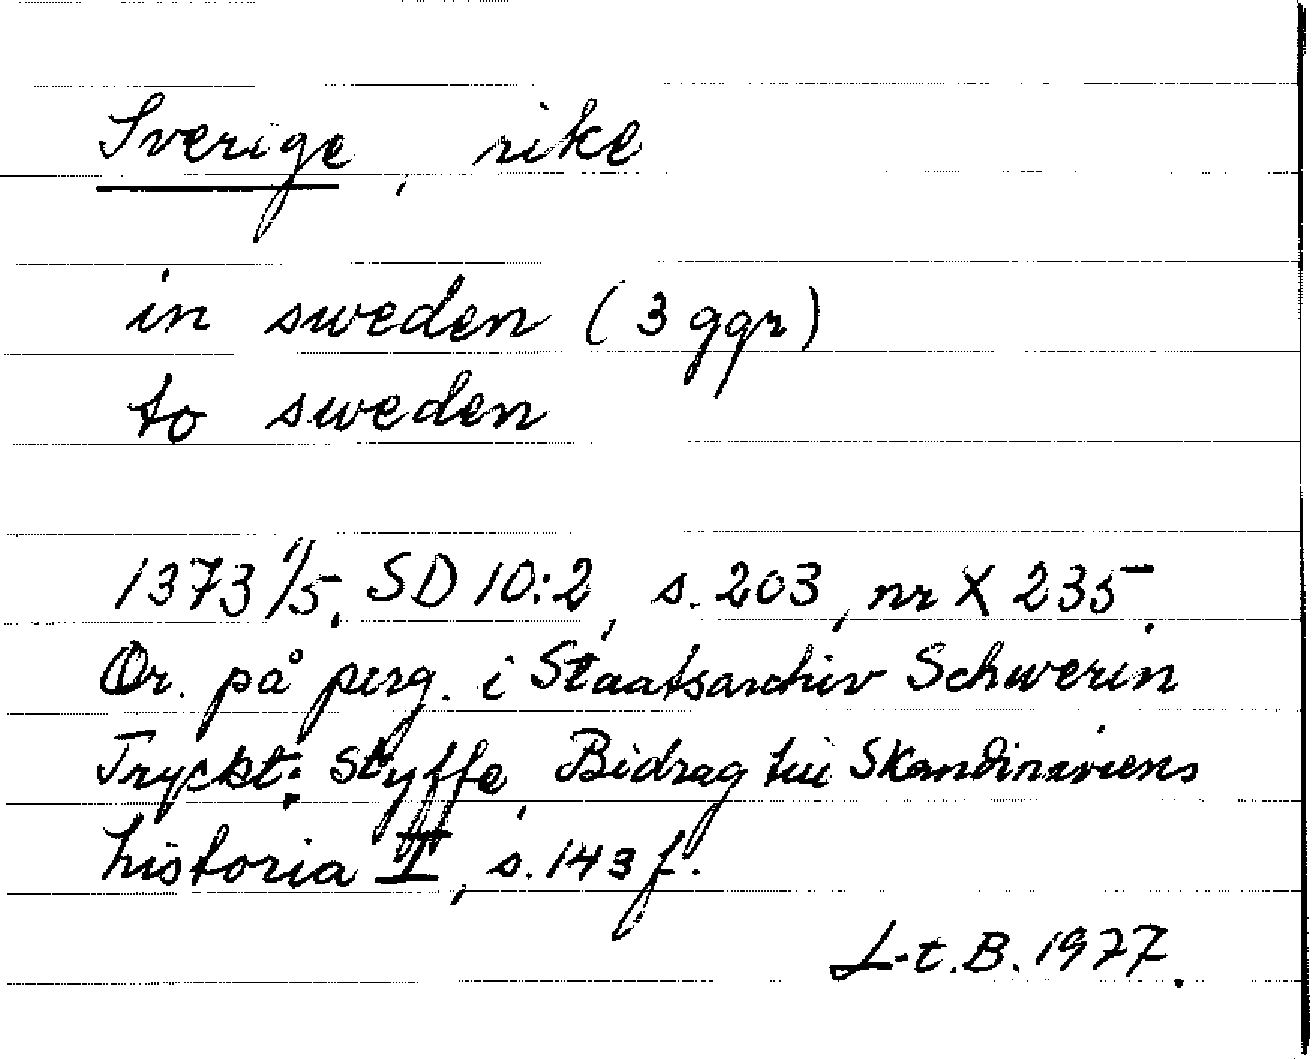 Sverige, rike
in sweden (3 ggr)
to sweden
1373 1/5, SD 10:2, s. 203, nr X 235.
Or. på perg. i Staatsarchiv Schwerin
Tryckt: Styffe, Bidrag till Skandinaviens
historia I, s. 143 f.
L-t. B. 1977.